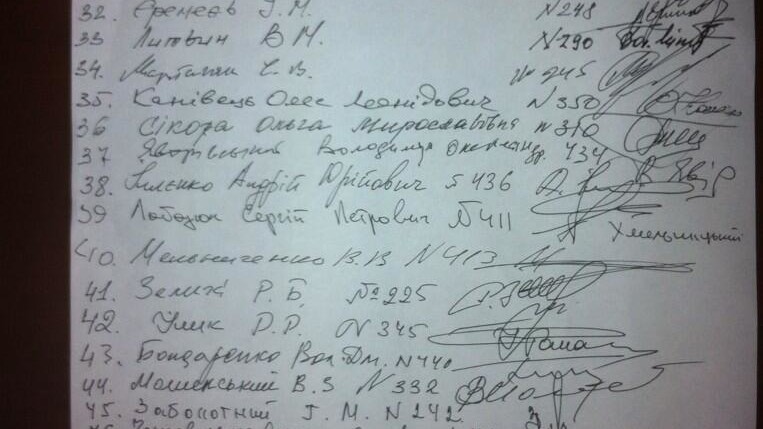 32. Єремеєв І. М. N248
33 Литвин В М. N290
34. Мартиняк С. В. № 245
35. Канівець Олес Леонідович N 350
36 Сікора Ольга Мирославівна N 310
37 Яворівський Володимир Олександр. 434
38. Ільєнко Андрій Юрійович 436
39 Лабазюк Сергій Петрович N 411
Хмельницький
40. Мельниченко В.В N 413
41. Р. Б. № 225
42. Р. N 345
43. Бондаренко Вол. Дм. N 440
44. В. N 332
45. Заболотний Г. М. N 242.